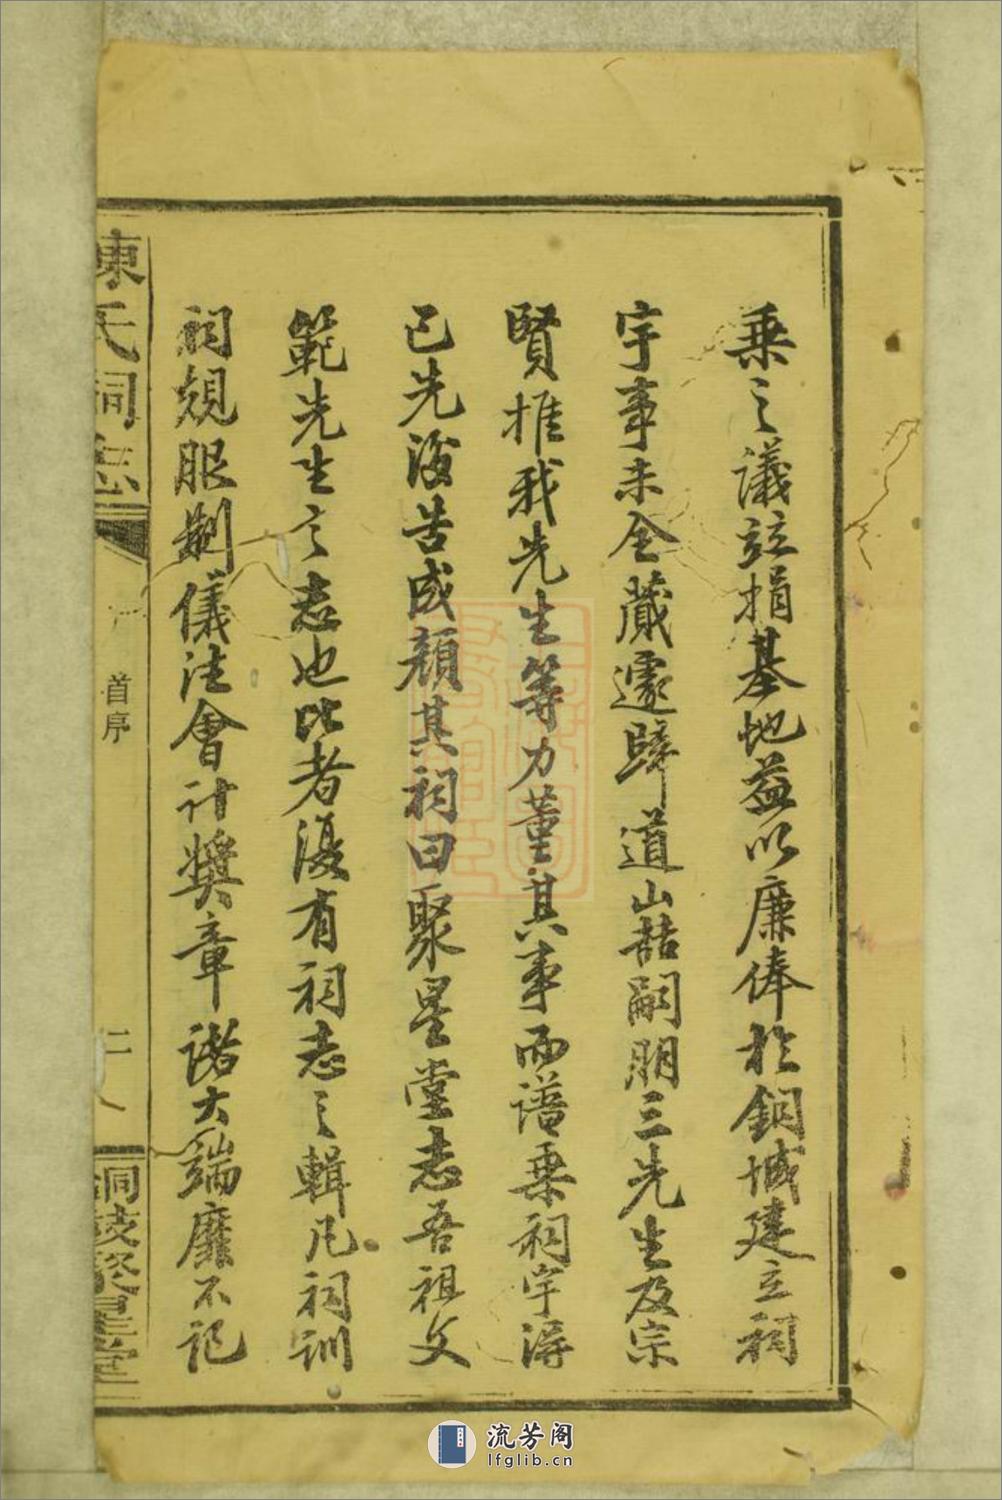 乘之議竝捐基地益以廉俸於銅城建立祠
宇事未全蕆遽歸道山喆嗣朋三先生及宗
賢推我先生等力董其事而譜乘祠宇得
已先後告成顏其祠曰聚星堂志吾祖文
範先生之志也比者復有祠志之輯凡祠訓
祠規服制儀注會計獎章諸大端靡不記
陳氏祠志
首序
二
銅鼓聚星堂
流芳阁
lfglib.cn